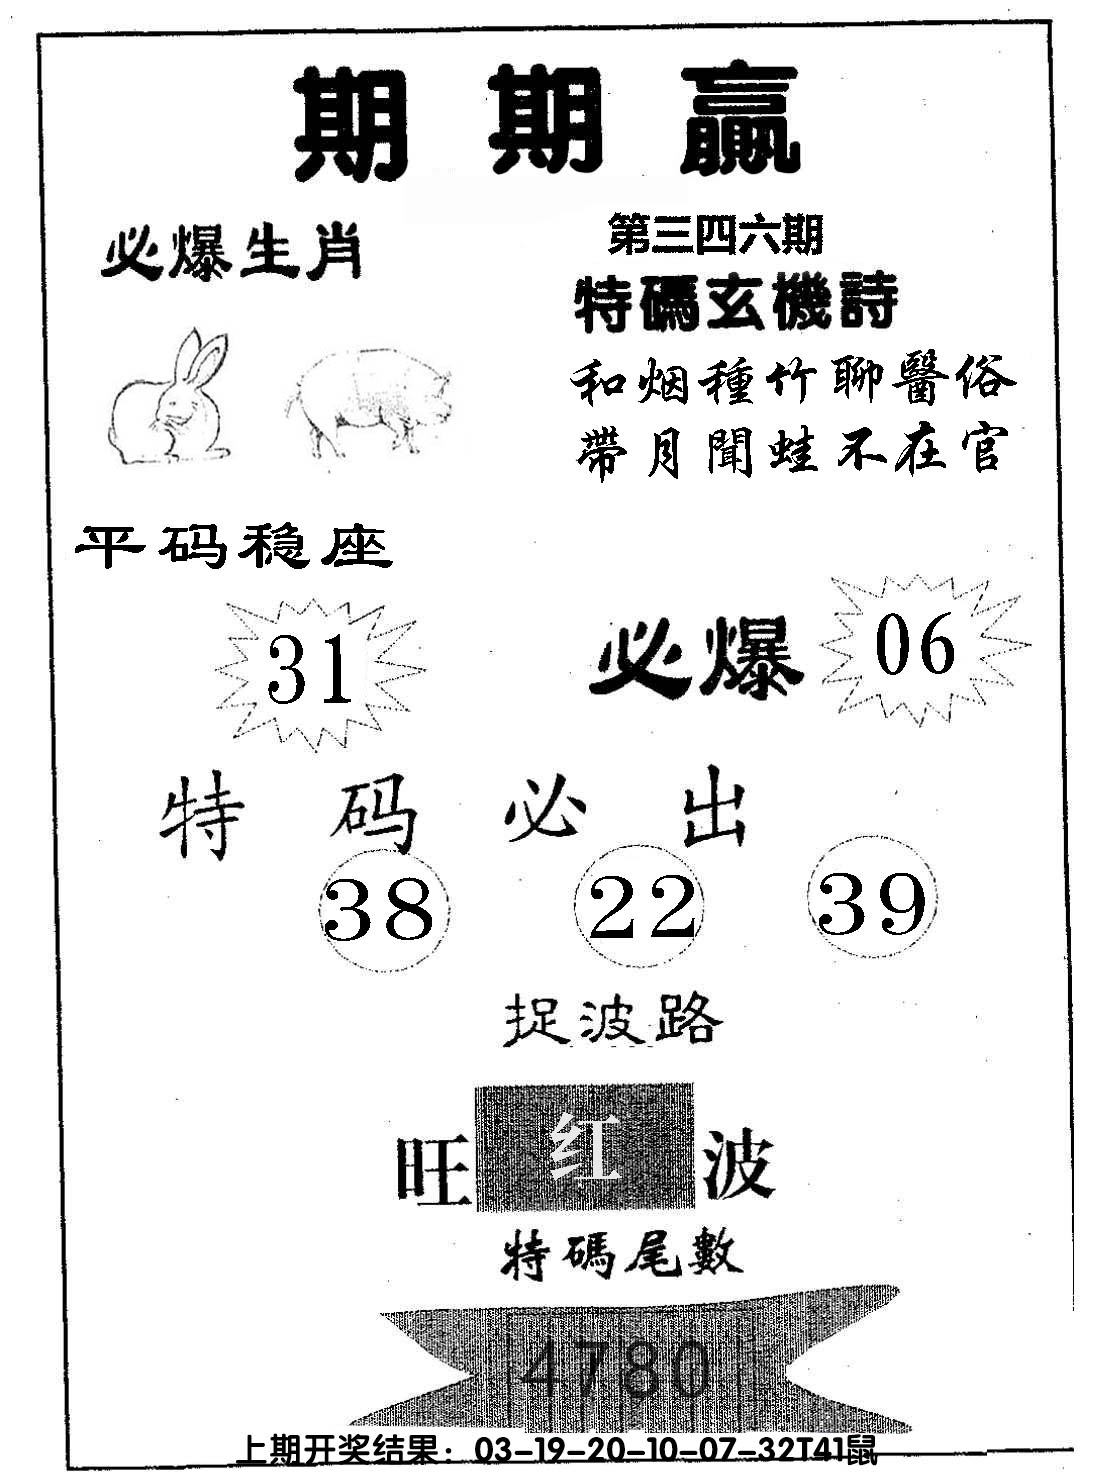 期期贏
必爆生肖
第三四六期
特碼玄機詩
和烟種竹聊醫俗
帶月聞蛙不在官
平码稳座
31
必爆 06
特码必出
38 22 39
捉波路
旺红波
特碼尾數
4780
上期开奖结果：03-19-20-10-07-32T41鼠